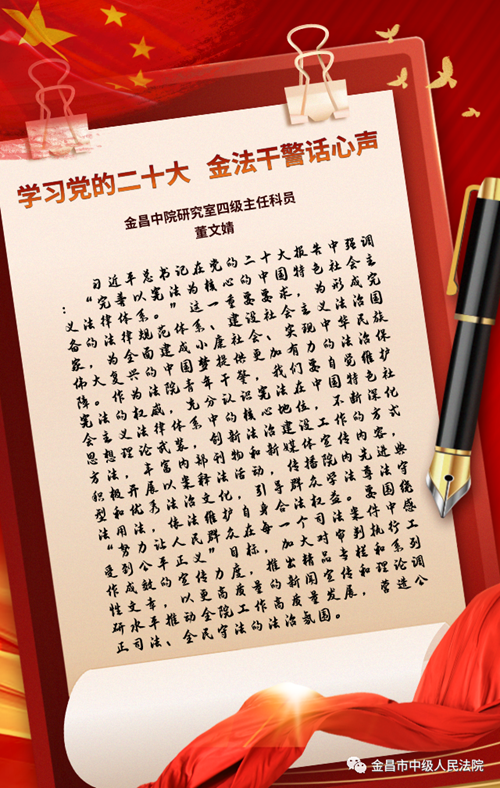 学习党的二十大 金法干警话心声
金昌中院研究室四级主任科员
董文婧
习近平总书记在党的二十大报告中强调
：“完善以宪法为核心的中国特色社会主
义法律体系。”这一重要要求，为形成完
备的法律规范体系、建设社会主义法治国
家，为全面建成小康社会、实现中华民族
伟大复兴的中国梦提供更加有力的法治保
障。作为法院青年干警，我们要自觉维护
宪法的权威，充分认识宪法在中国特色社
会主义法律体系中的核心地位，不断深化
思想理论武装，创新法治建设工作的方式
方法，丰富内部刊物和新媒体宣传内容，
积极开展以案释法活动，传播院内先进典
型和优秀法治文化，引导群众学法尊法守
法用法，依法维护自身合法权益。要围绕
“努力让人民群众在每一个司法案件中感
受到公平正义”目标，加大对审判执行工
作成效的宣传力度，推出精品专栏和系列
性文章，以更高质量的新闻宣传和理论调
研水平推动全院工作高质量发展，营造公
正司法、全民守法的法治氛围。
金昌市中级人民法院